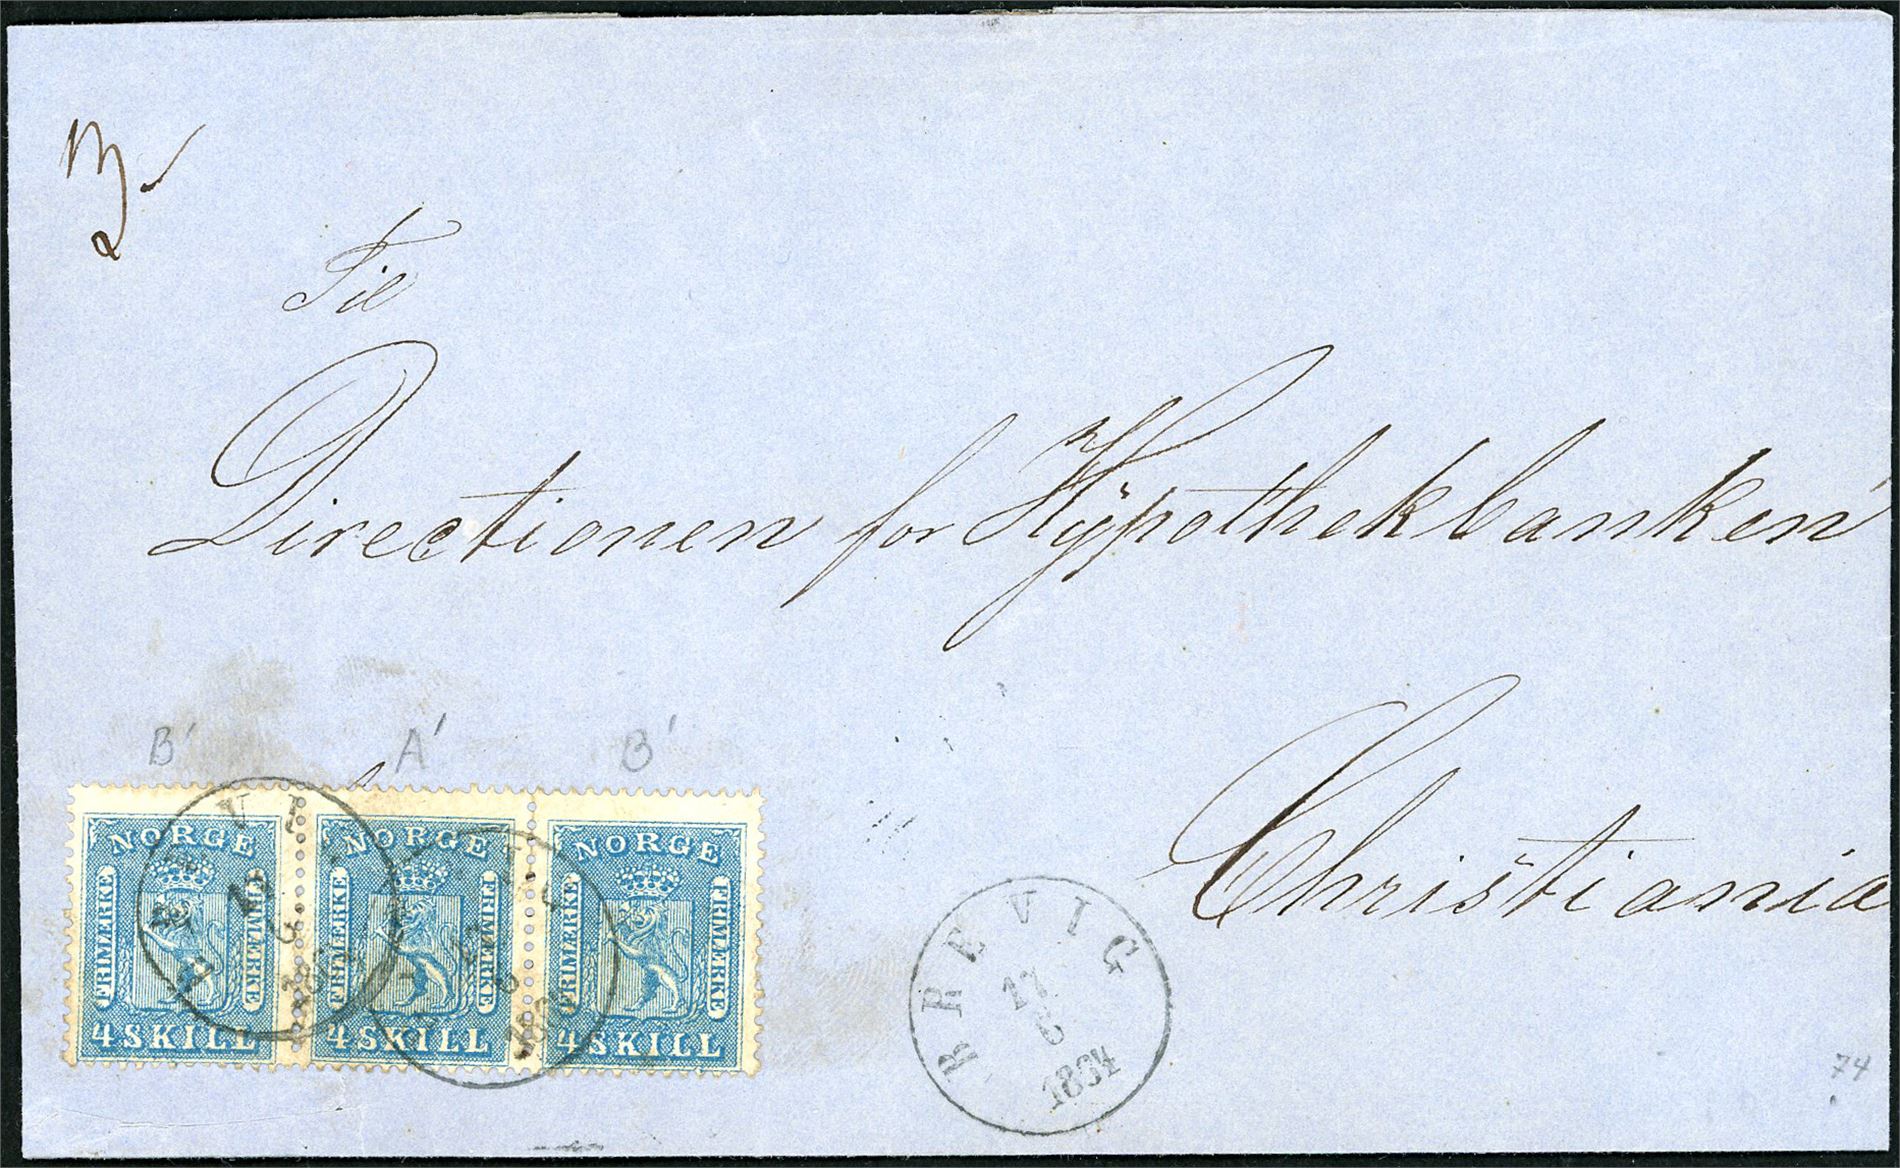 3
Til
Directionen for Hÿpothekbanken
Christiania
B' A' B'
NORGE FRIMÆRKE FRIMÆRKE 4 SKILL
NORGE FRIMÆRKE FRIMÆRKE 4 SKILL
NORGE FRIMÆRKE FRIMÆRKE 4 SKILL
BREVIG
17
6
1864
74